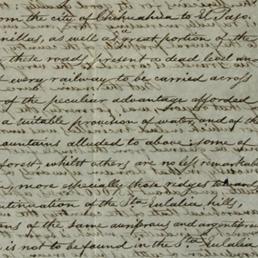 from the city of Chihuahua to El Paso.
nillas, as well as great portion of the
these roads present a dead level and
t every railway to be carried across
of the peculiar advantage afforded
a suitable provision of water, and of the
ountains alluded to above: some of
forest, whilst others are no less remarkable
more especially those ridges that
ntinuation of the Sta Eulalia hills,
ns of the same auriferous and argentiferous
is not to be found in the Sta Eulalia